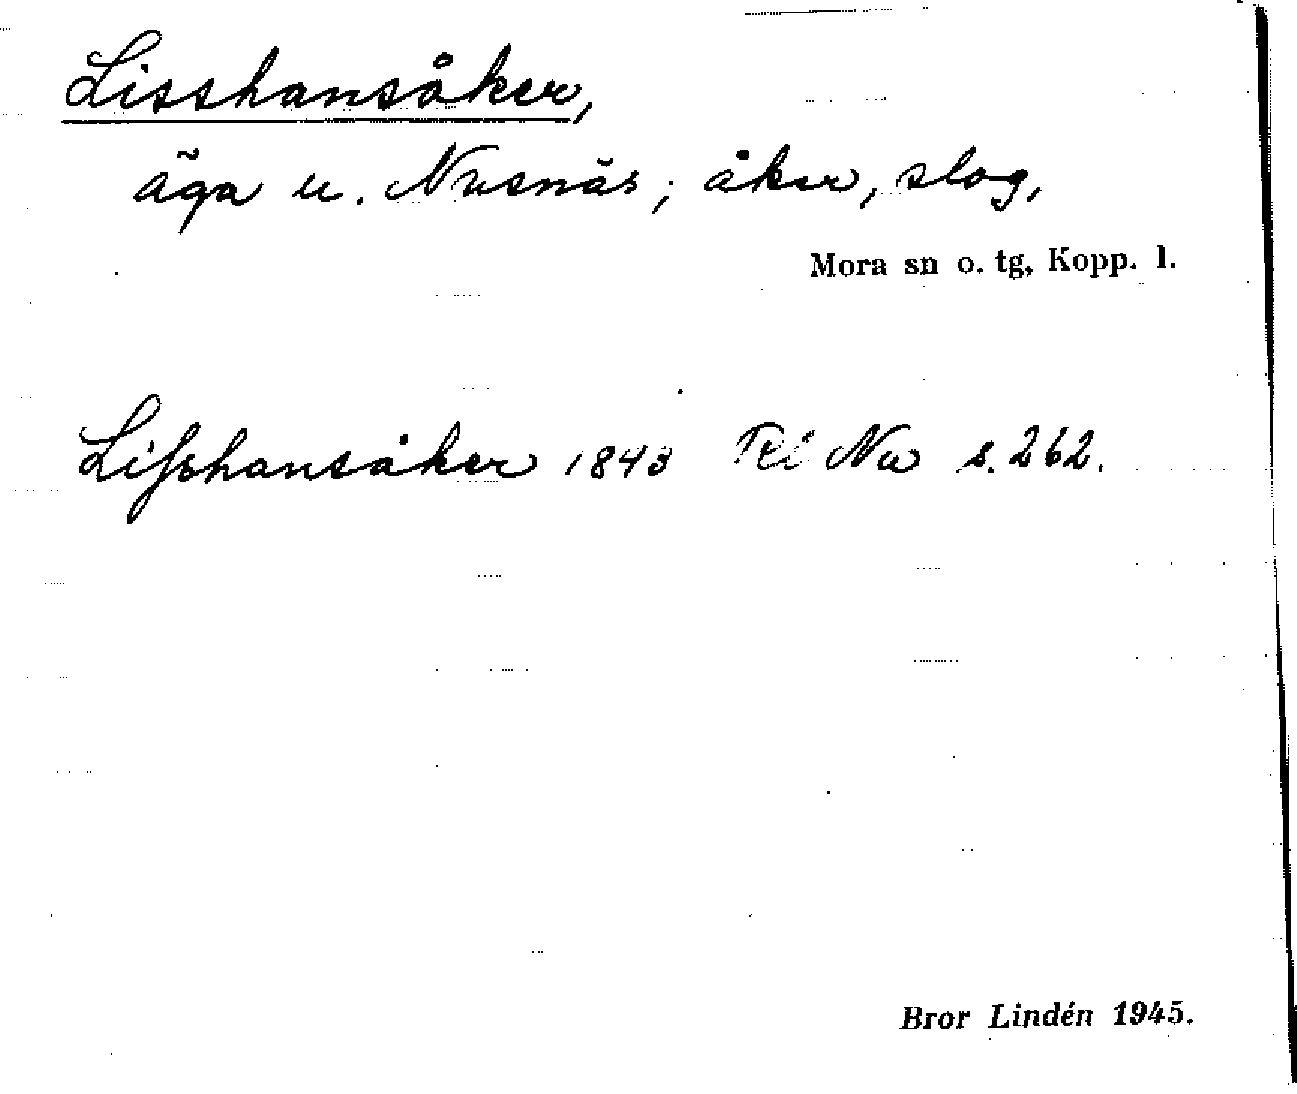 Lisshansåker,
äga u. Nusnäs; åker, slog,
Mora sn o. tg, Kopp. l.
Lifshansåker 1843 Nu s. 262.
Bror Lindén 1945.